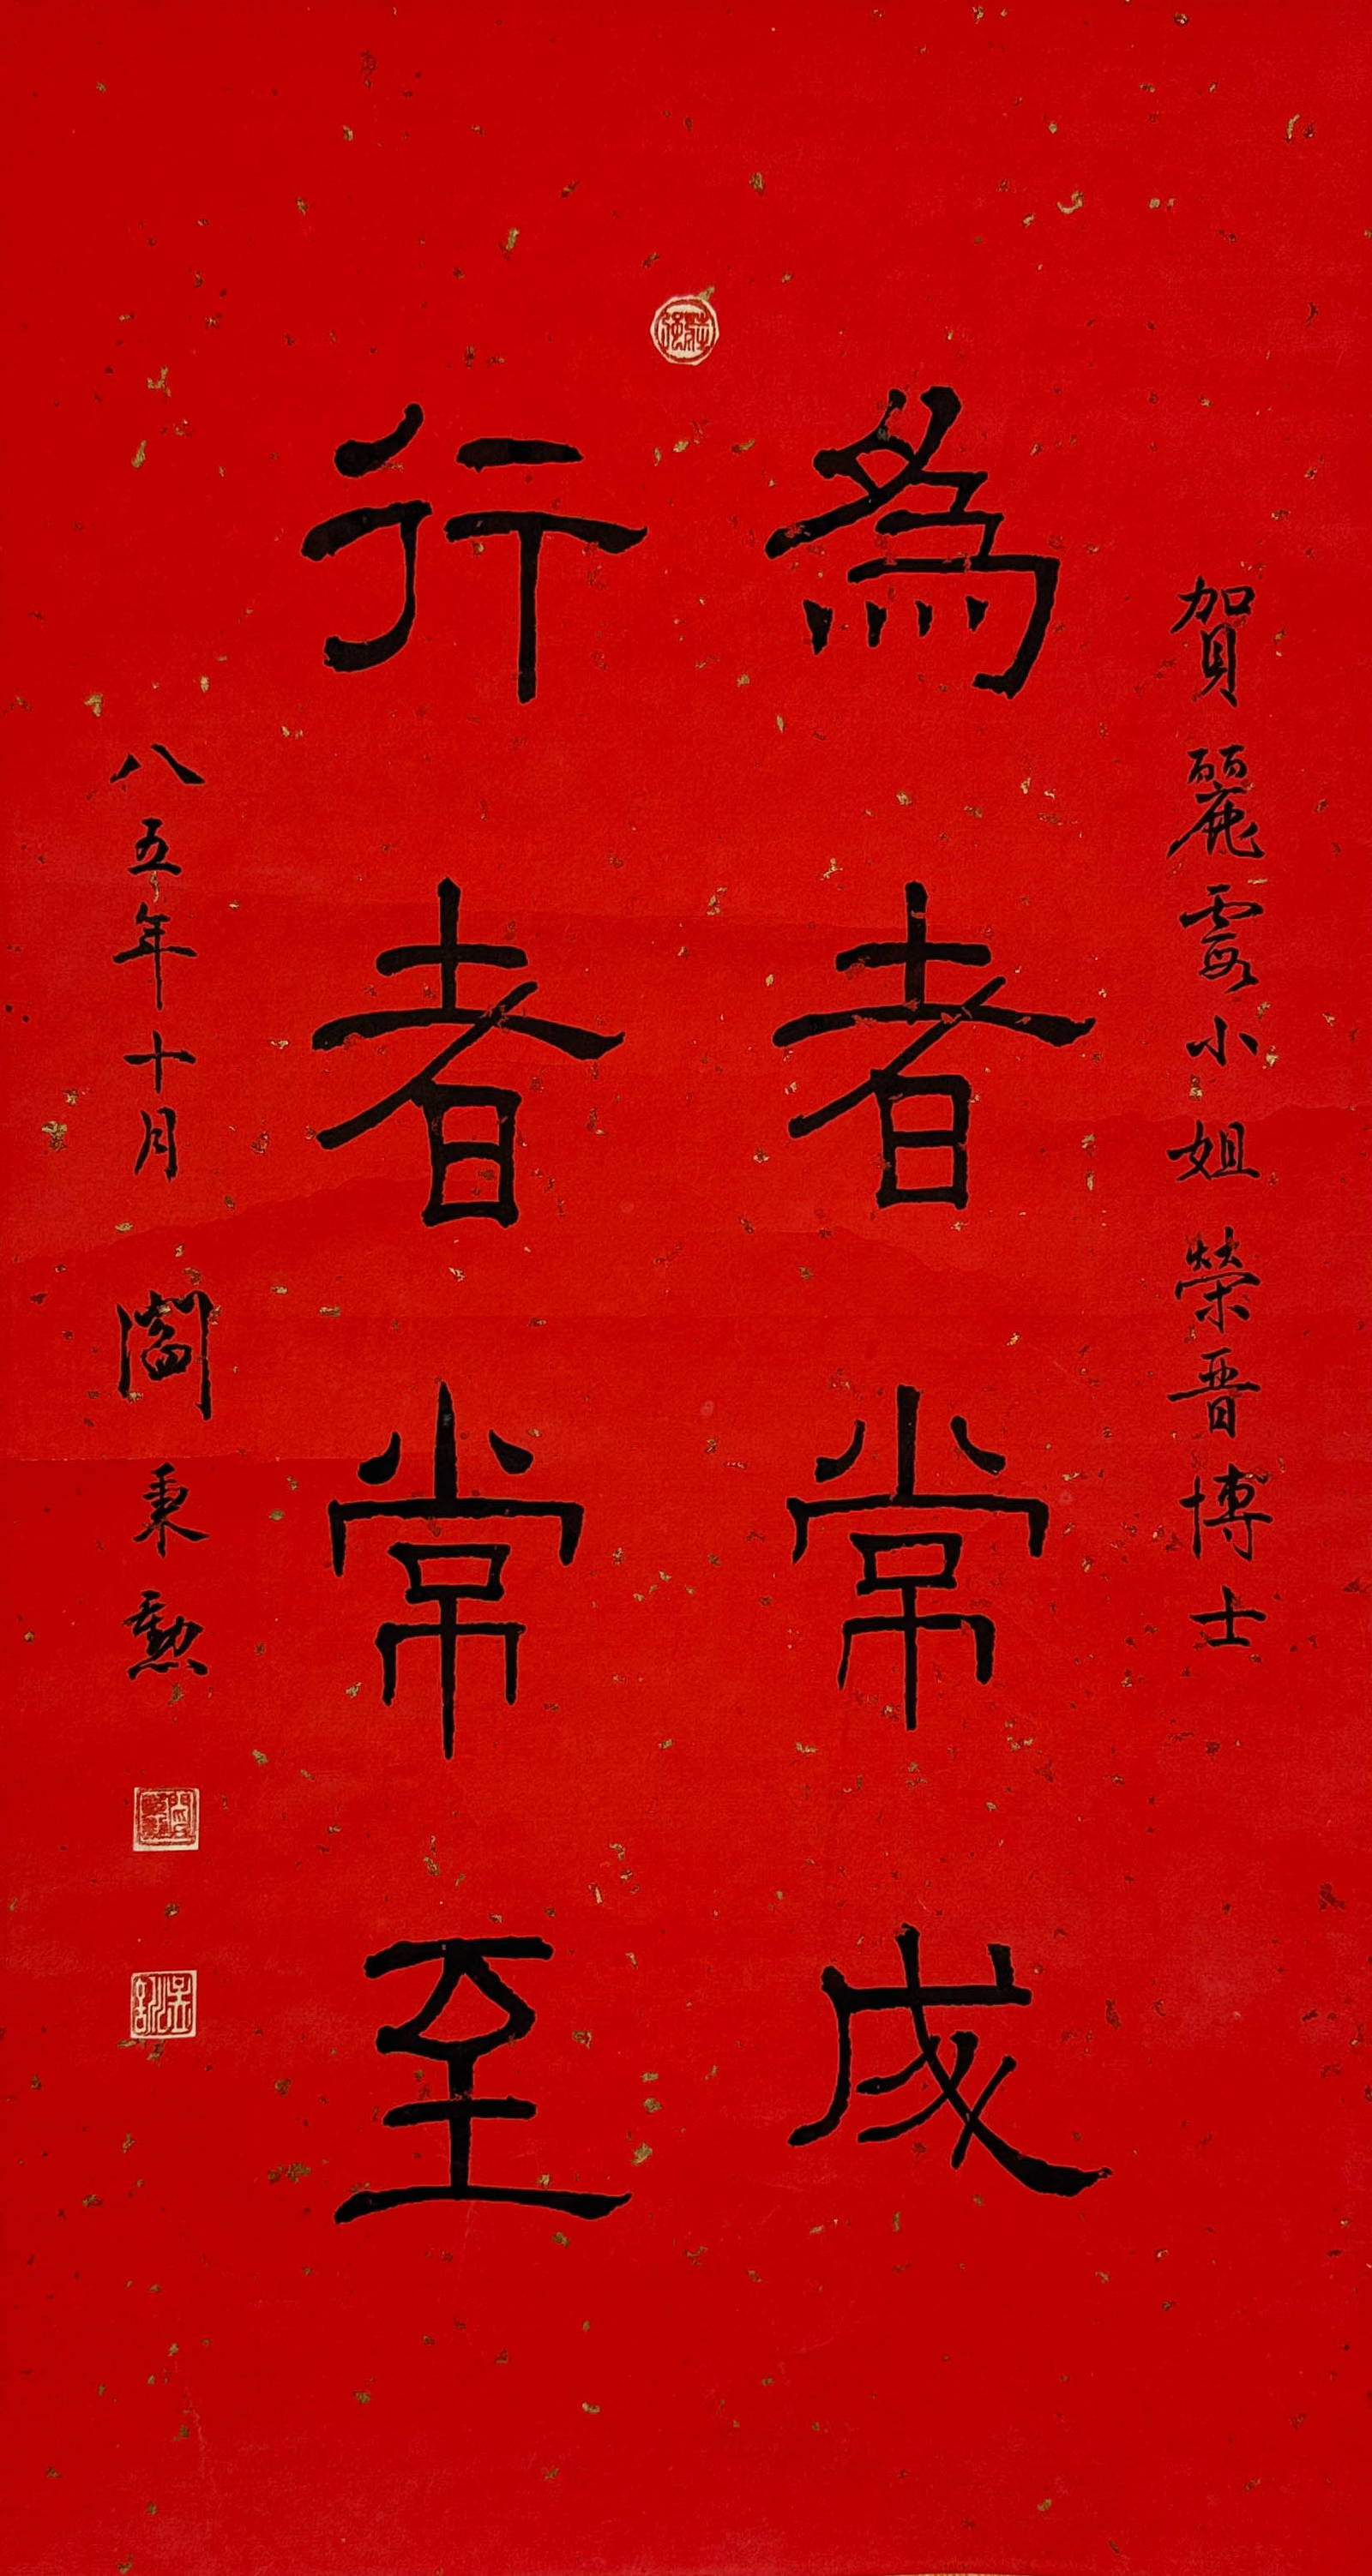 賀麗霞小姐榮晉博士
為者常成
行者常至
八五年十月 閻秉勳